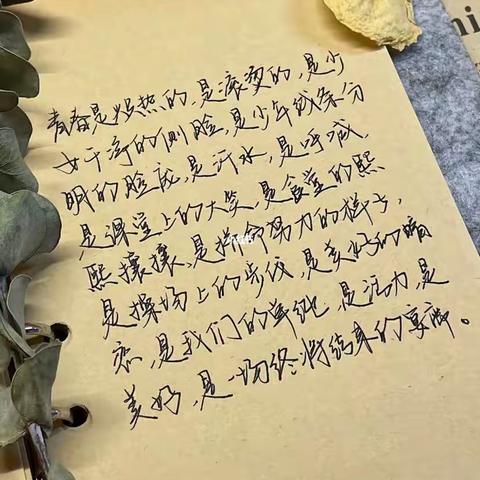 青春是灼热的,是滚烫的,是少
女干净的侧脸,是少年线条分
明的脸庞,是汗水,是呼喊,
是课堂上的大笑,是食堂的熙
熙攘攘,是拼命努力的样子,
是操场上的步伐,是美好的暗
恋,是我们的单纯,是活力,是
美好,是一场终将结束的享宴。
ni